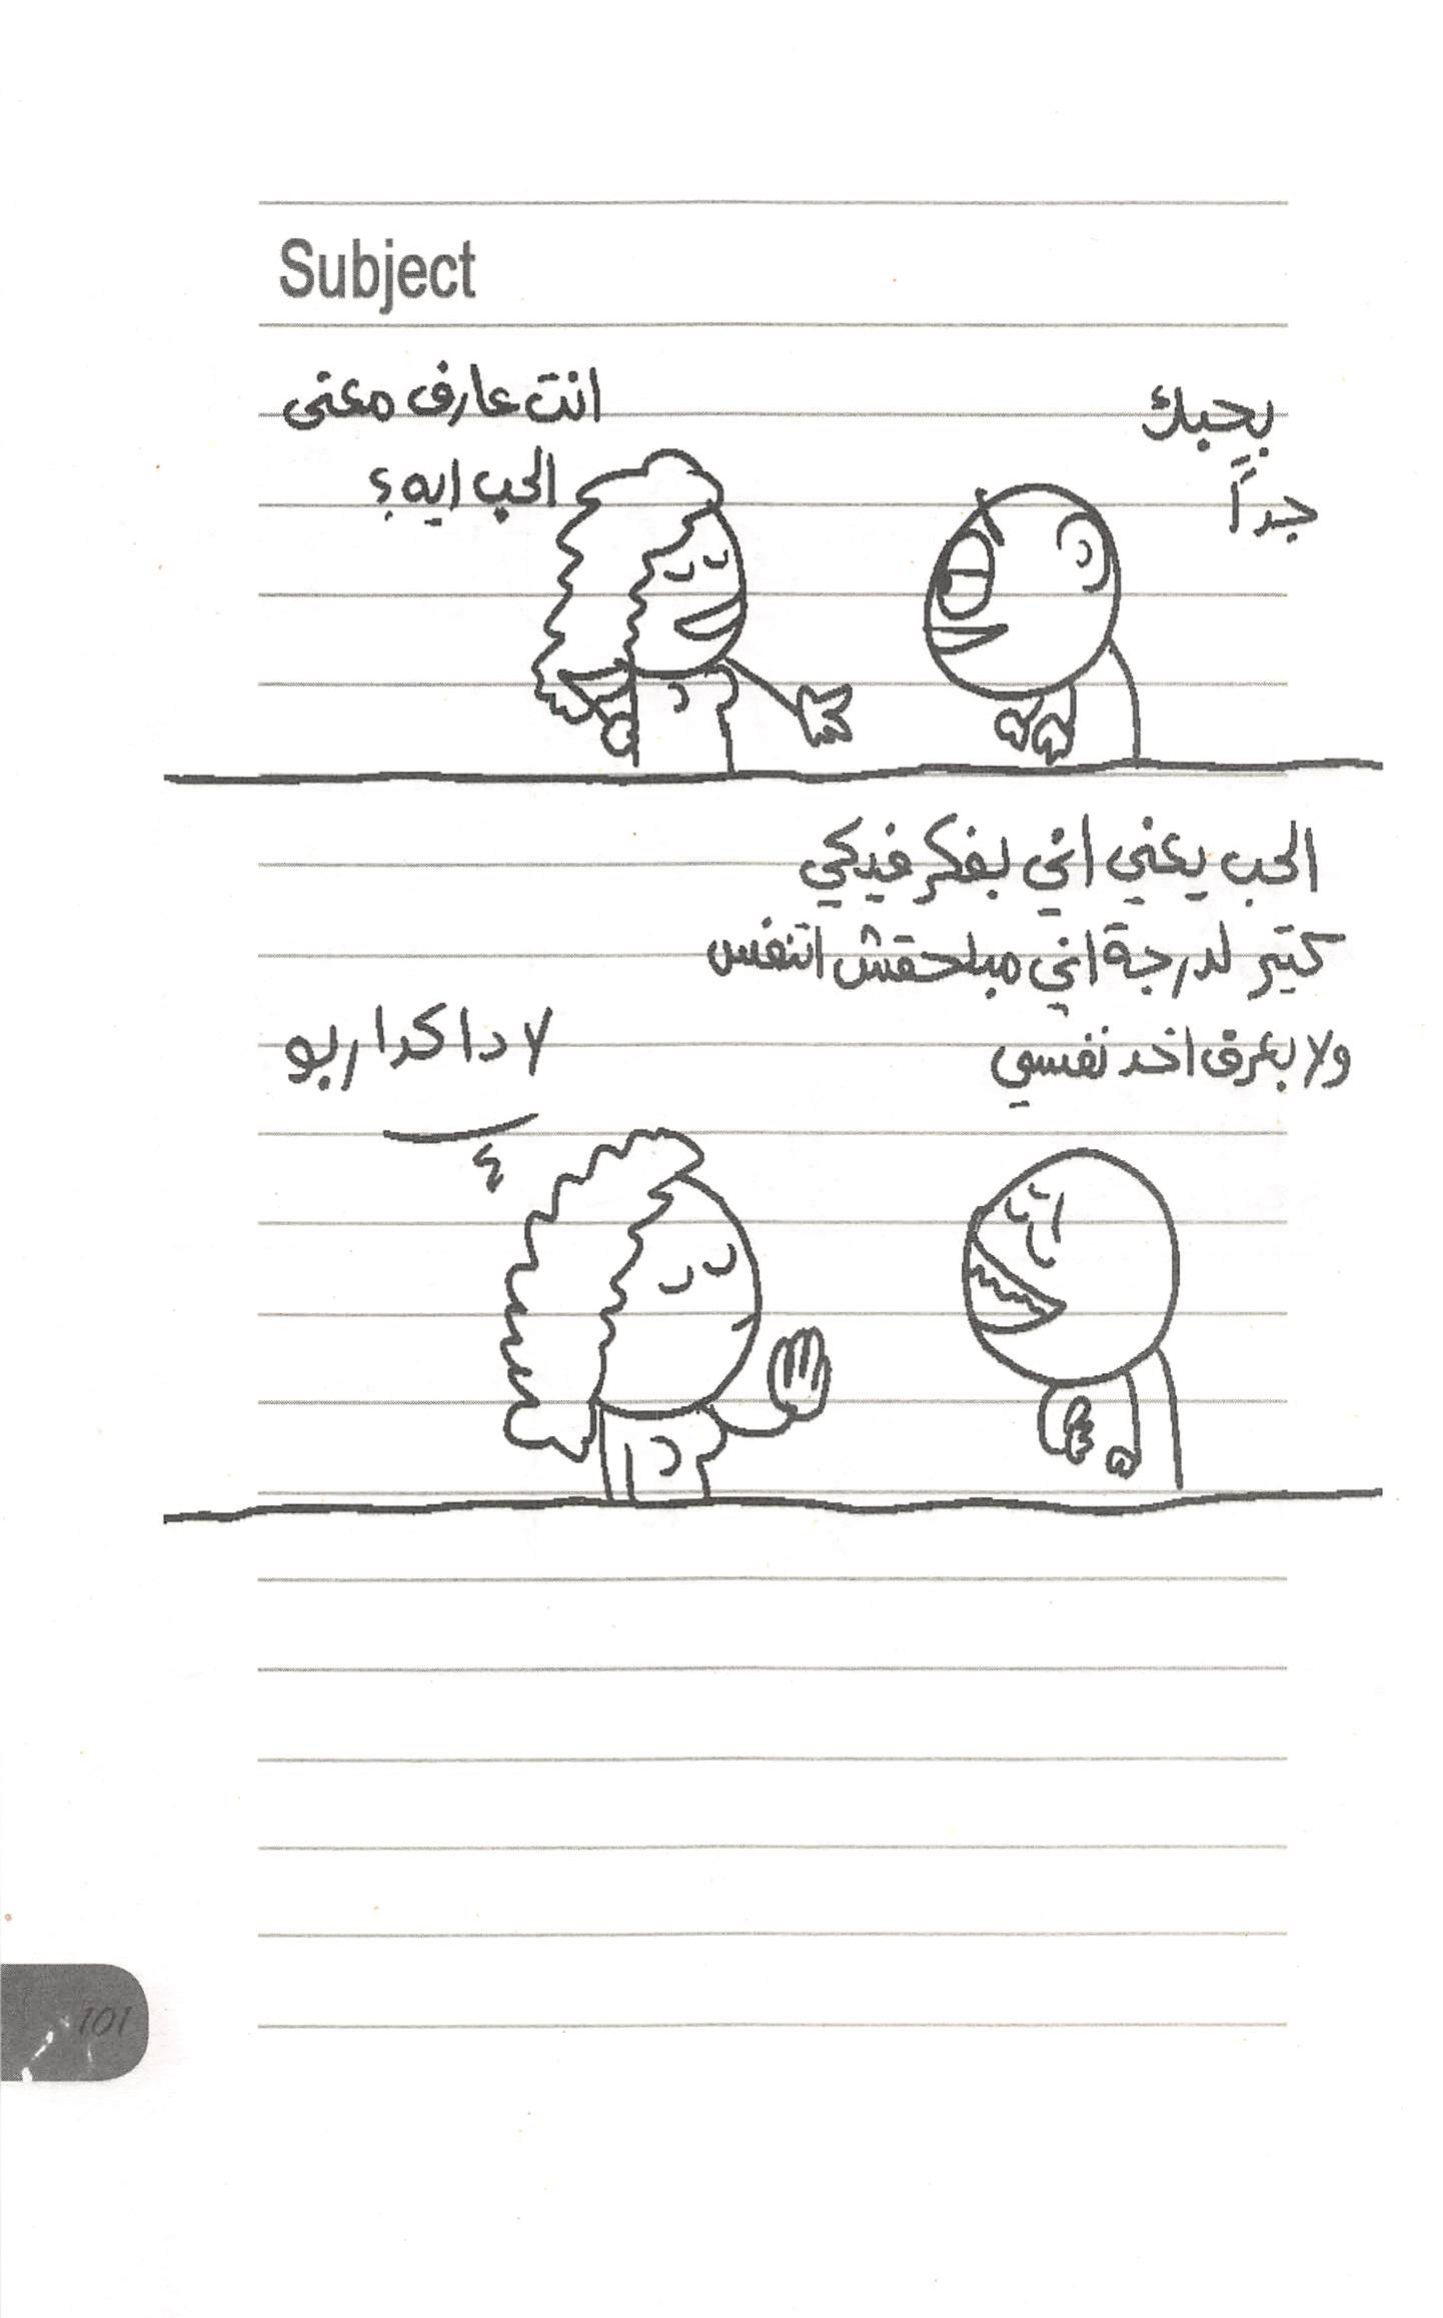 Subject
بحبك
جداً
انت عارف معنى
الحب ايه؟
الحب يعني اني بفكر فيكي
كتير لدرجة اني مبلحقش اتنفس
ولا بعرف اخد نفسي
لا دا كدا ربو
101